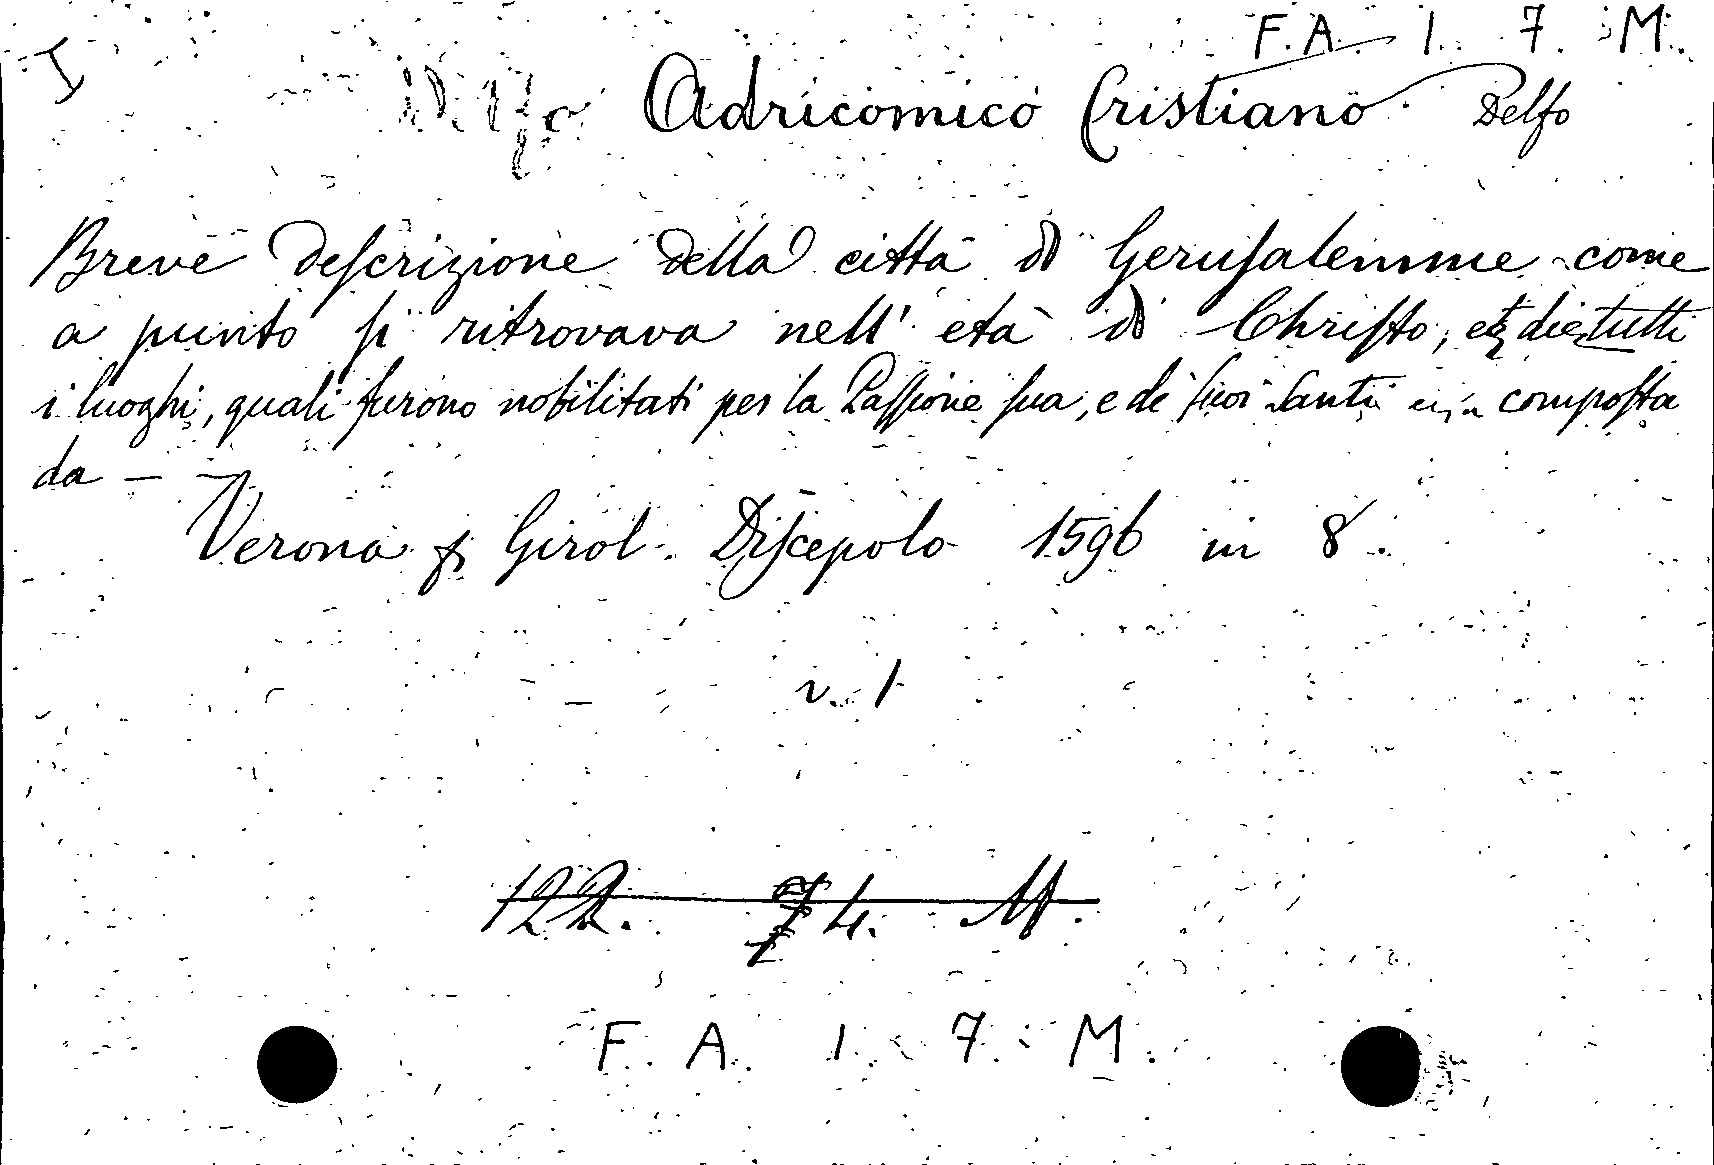 F. A. 1. 7. M.
I
Adricomico Cristiano. Delfo
Breve Descrizione della città di Gerusalemme come
a punto si ritrovava nell' età di Christo, et di tutti
i luoghi, quali furono nobilitati per la Passione sua, e de' suoi Santi composta
da —
Verona p. Girol. Discepolo 1596 in 8.
v. 1
122. 74. M.
F. A. 1. 7. M.